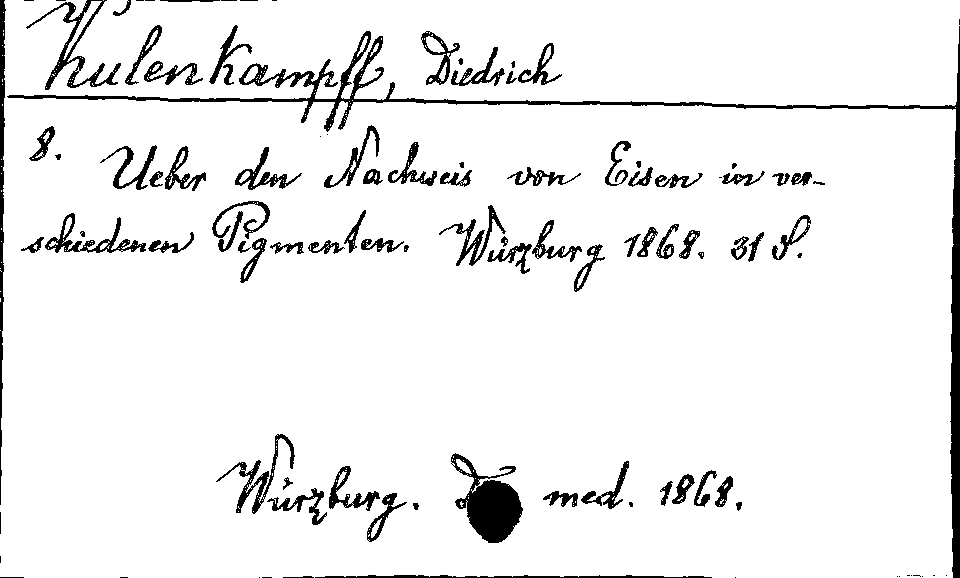 Kulenkampff, Diedrich
8. Ueber den Nachweis von Eisen in ver-
schiedenen Pigmenten. Würzburg 1868. 31 S.
Würzburg. med. 1868.